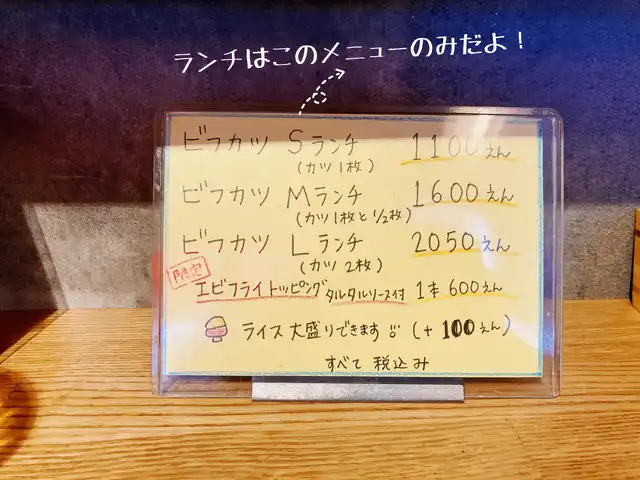 ランチはこのメニューのみだよ！
ビフカツ Sランチ 1100えん
(カツ1枚)
ビフカツ Mランチ 1600えん
(カツ1枚と1/2枚)
ビフカツ Lランチ 2050えん
(カツ2枚)
限定
エビフライトッピング タルタルソース付 1本600えん
ライス大盛りできます (+100えん)
すべて税込み